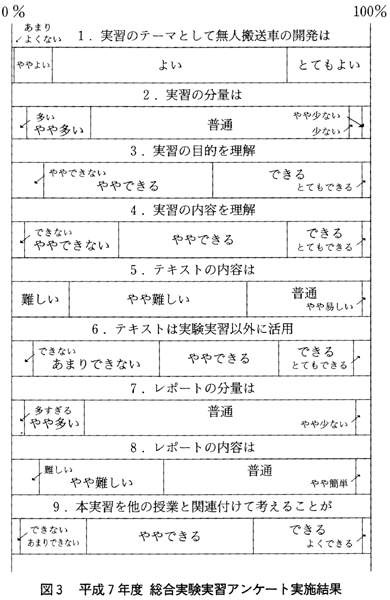 0 % 100%
あまり
よくない
1．実習のテーマとして無人搬送車の開発は
ややよい よい とてもよい
2．実習の分量は
多い やや少ない
やや多い 普通 少ない
3．実習の目的を理解
ややできない できる
ややできる とてもできる
4．実習の内容を理解
できない できる
ややできない ややできる とてもできる
5．テキストの内容は
難しい やや難しい 普通
やや易しい
6．テキストは実験実習以外に活用
できない できる
あまりできない ややできる とてもできる
7．レポートの分量は
多すぎる 普通
やや多い やや少ない
8．レポートの内容は
難しい 普通
やや難しい やや簡単
9．本実習を他の授業と関連付けて考えることが
できない ややできる できる
あまりできない よくできる
図3 平成7年度 総合実験実習アンケート実施結果